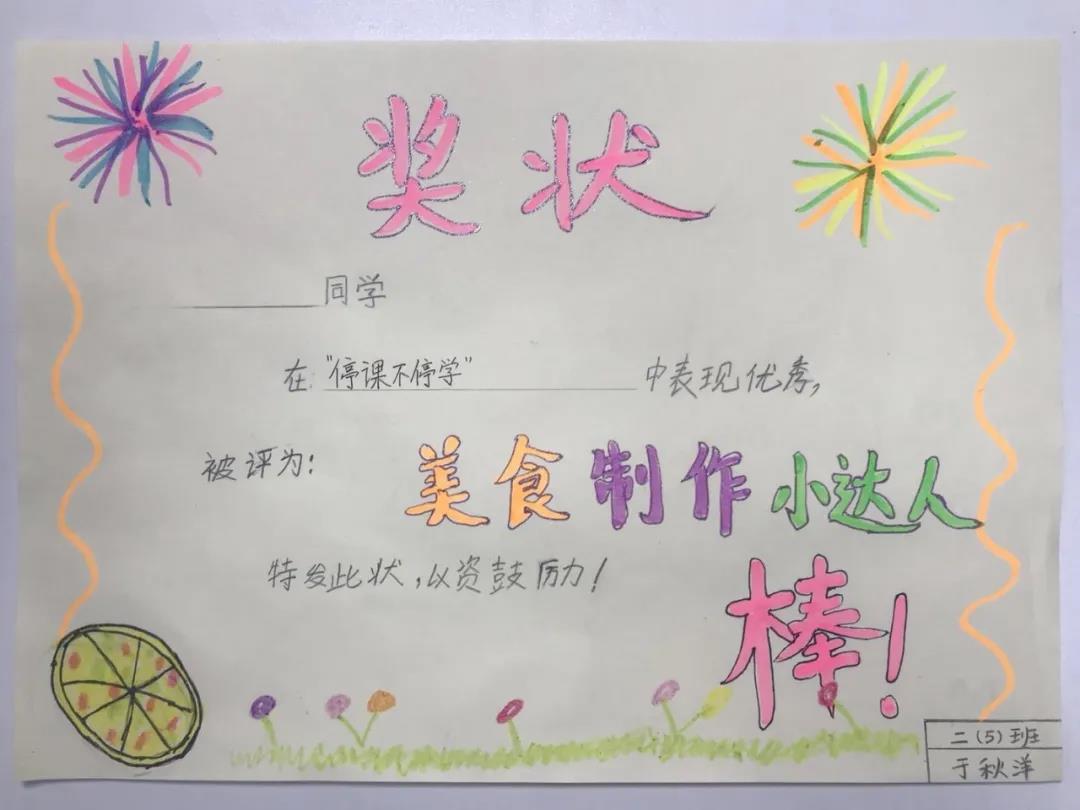 奖状
同学
在"停课不停学"中表现优秀,
被评为:美食制作小达人
特发此状,以资鼓厉力!
棒!
二(5)班
于秋洋